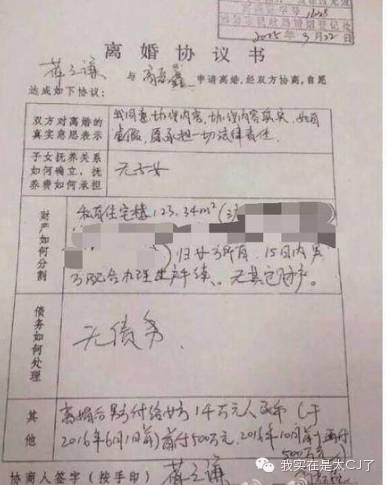 2015年3月22日
离婚协议书
蒋之谦 与 申请离婚,经双方协商,自愿
达成如下协议:
双方对离婚的
真实意思表示
我同意协议内容,协议内容真实,如有
虚假,愿承担一切法律责任。
子女抚养关系
如何确立,抚
养费如何承担
无子女
财产如何分割
私有住宅楼123.34m²(
)归女方所有,15日内男
方配合办理 产手续。无其它财产。
债务如何处理
无债务。
其他
离婚后男方付给女方 万元人民币(于
2016年6月1日前)首付500万元,2016年10月前 再付
500万元
协商人签字(按手印) 蒋之谦
我实在是太CJ了